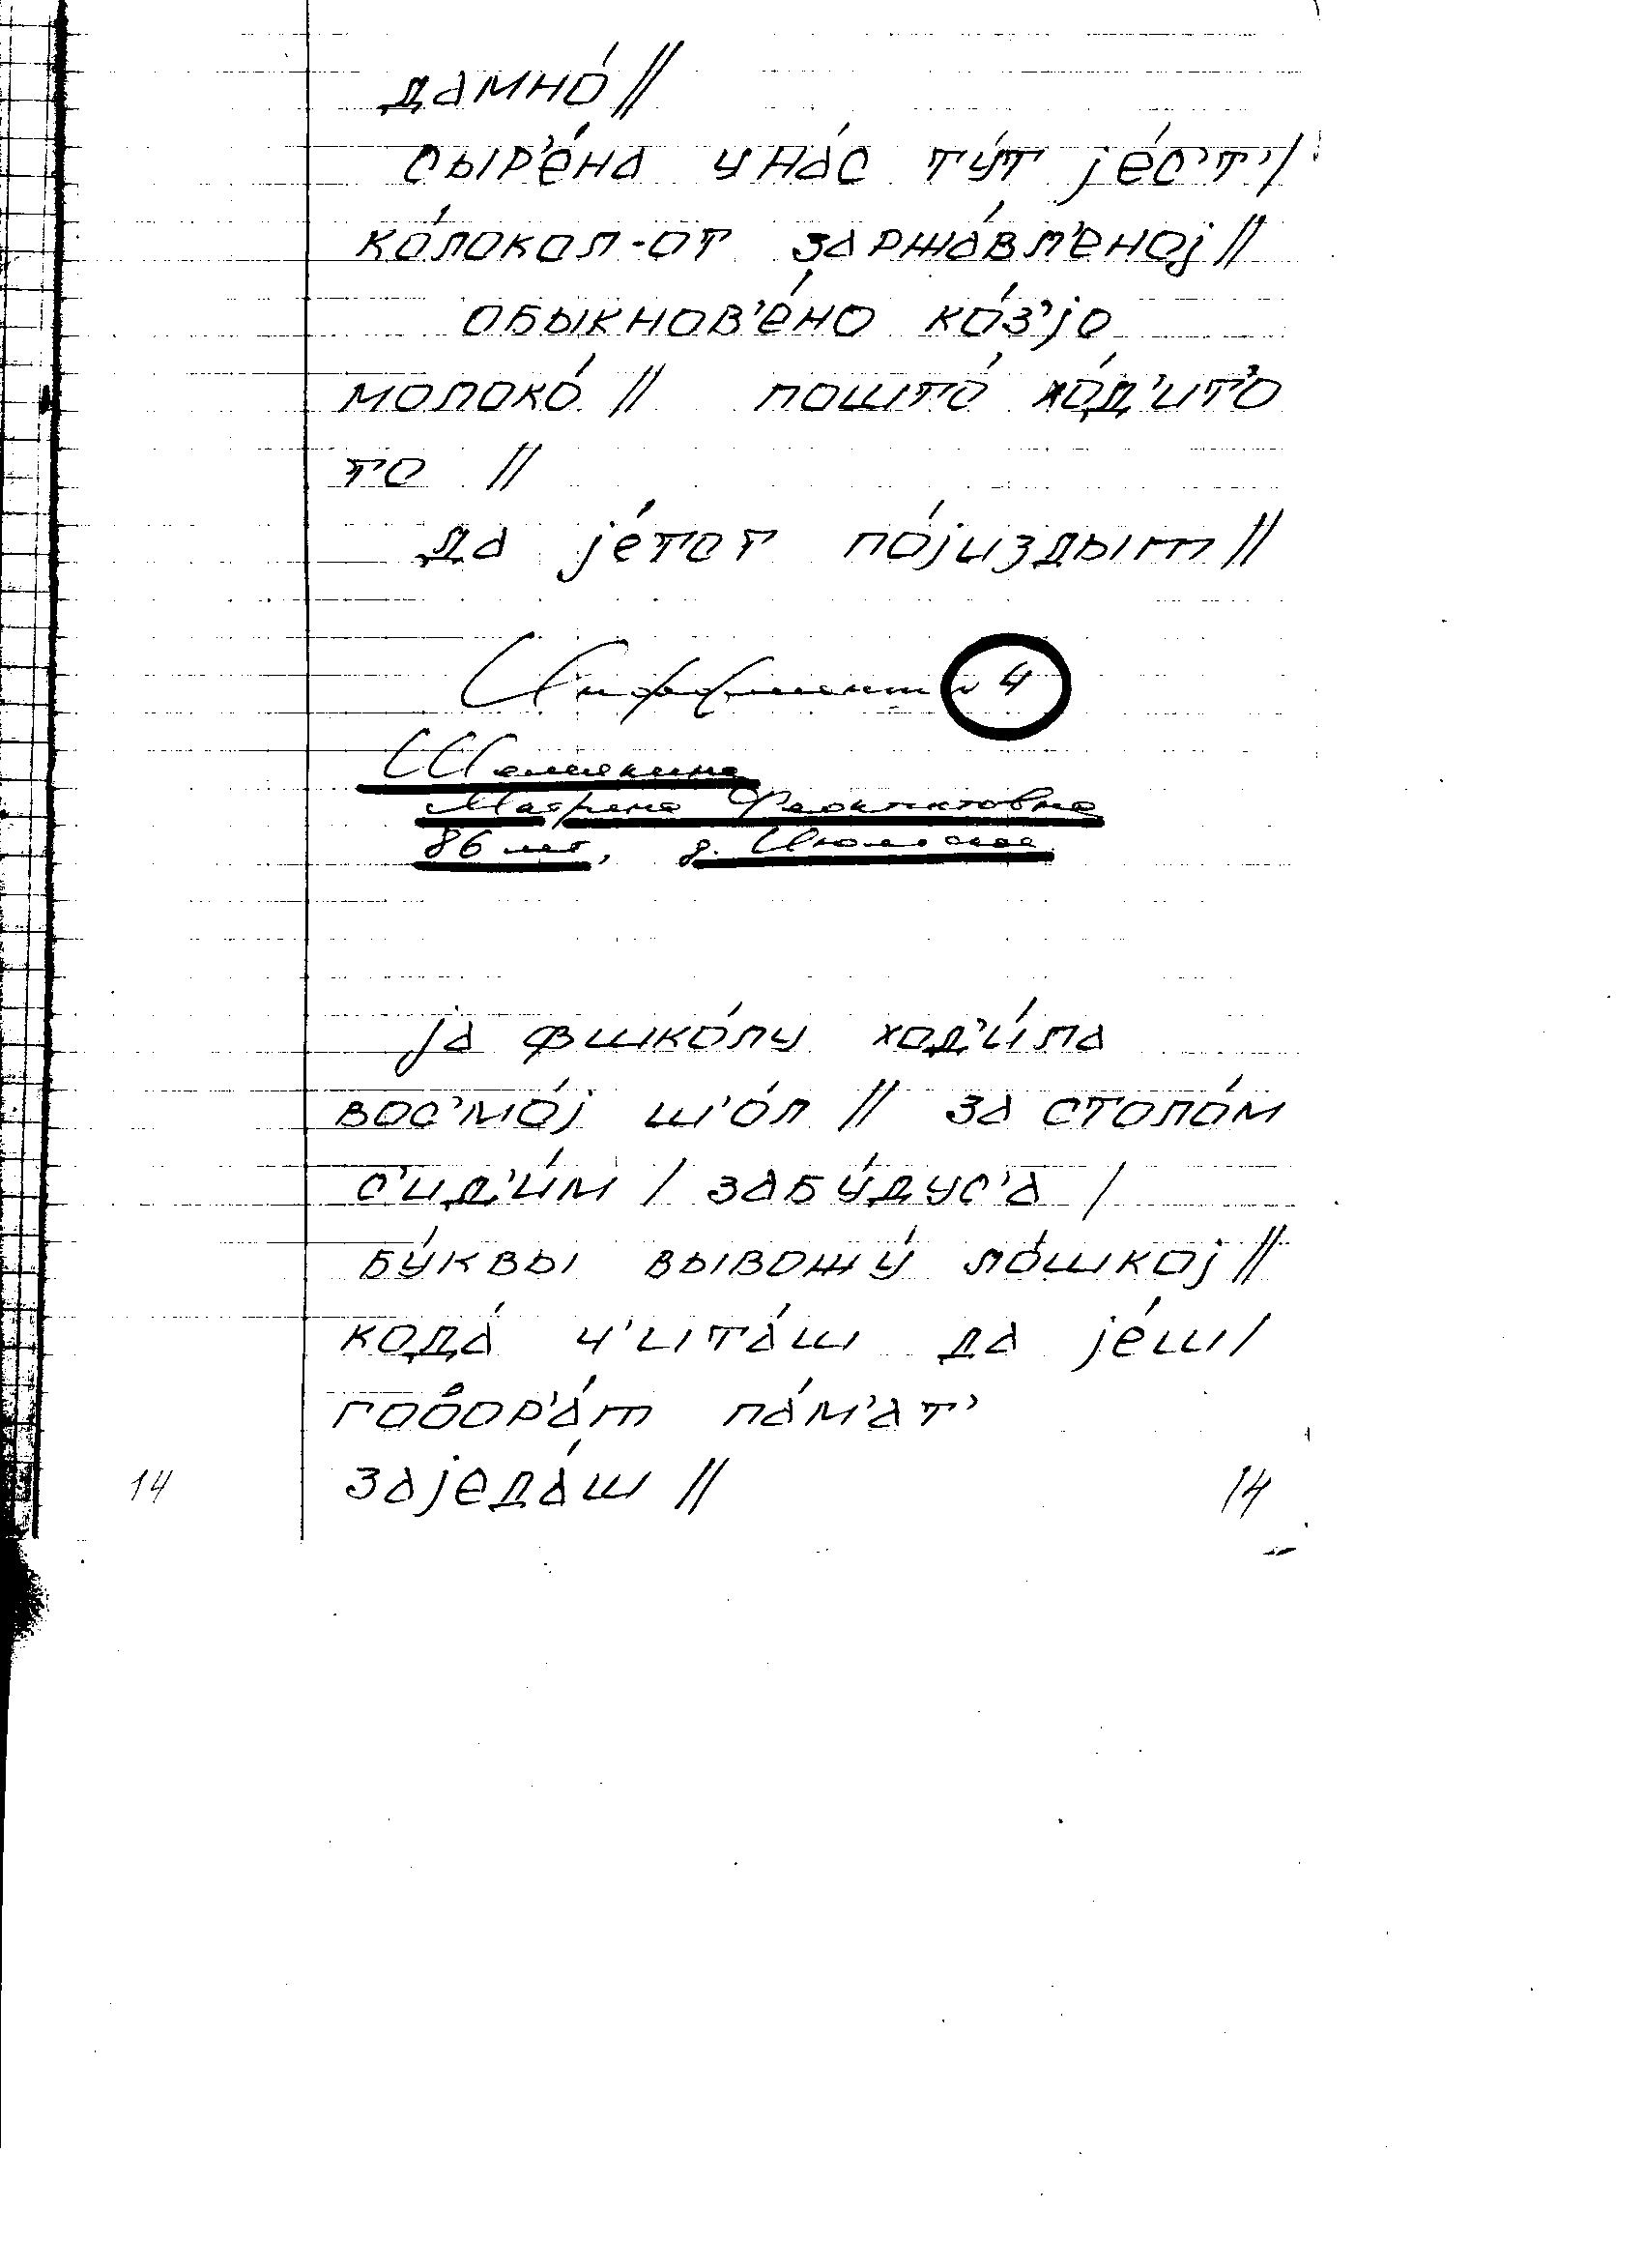 дамно́ //
сыр'е́на у на́с ту́т jе́с'т' /
ко́локол-от заржа́вл'еноj //
обыкнов'е́но ко́з'jо
молоко́ // пошто́ хо́д'ит'о
то //
да jе́тот по́jиздыт //
Информант № 4
Матрена Феоктистовна
86 лет, д. Июльское
jа фшко́лу ход'и́ла
вос'мо́j ш'о́л // за столо́м
с'ид'и́м / забу́дус'а /
бу́квы вывожу́ ло́шкоj //
кода́ ч'ита́ш да jе́ш /
говор'а́т па́м'ат'
заjеда́ш //
14 14